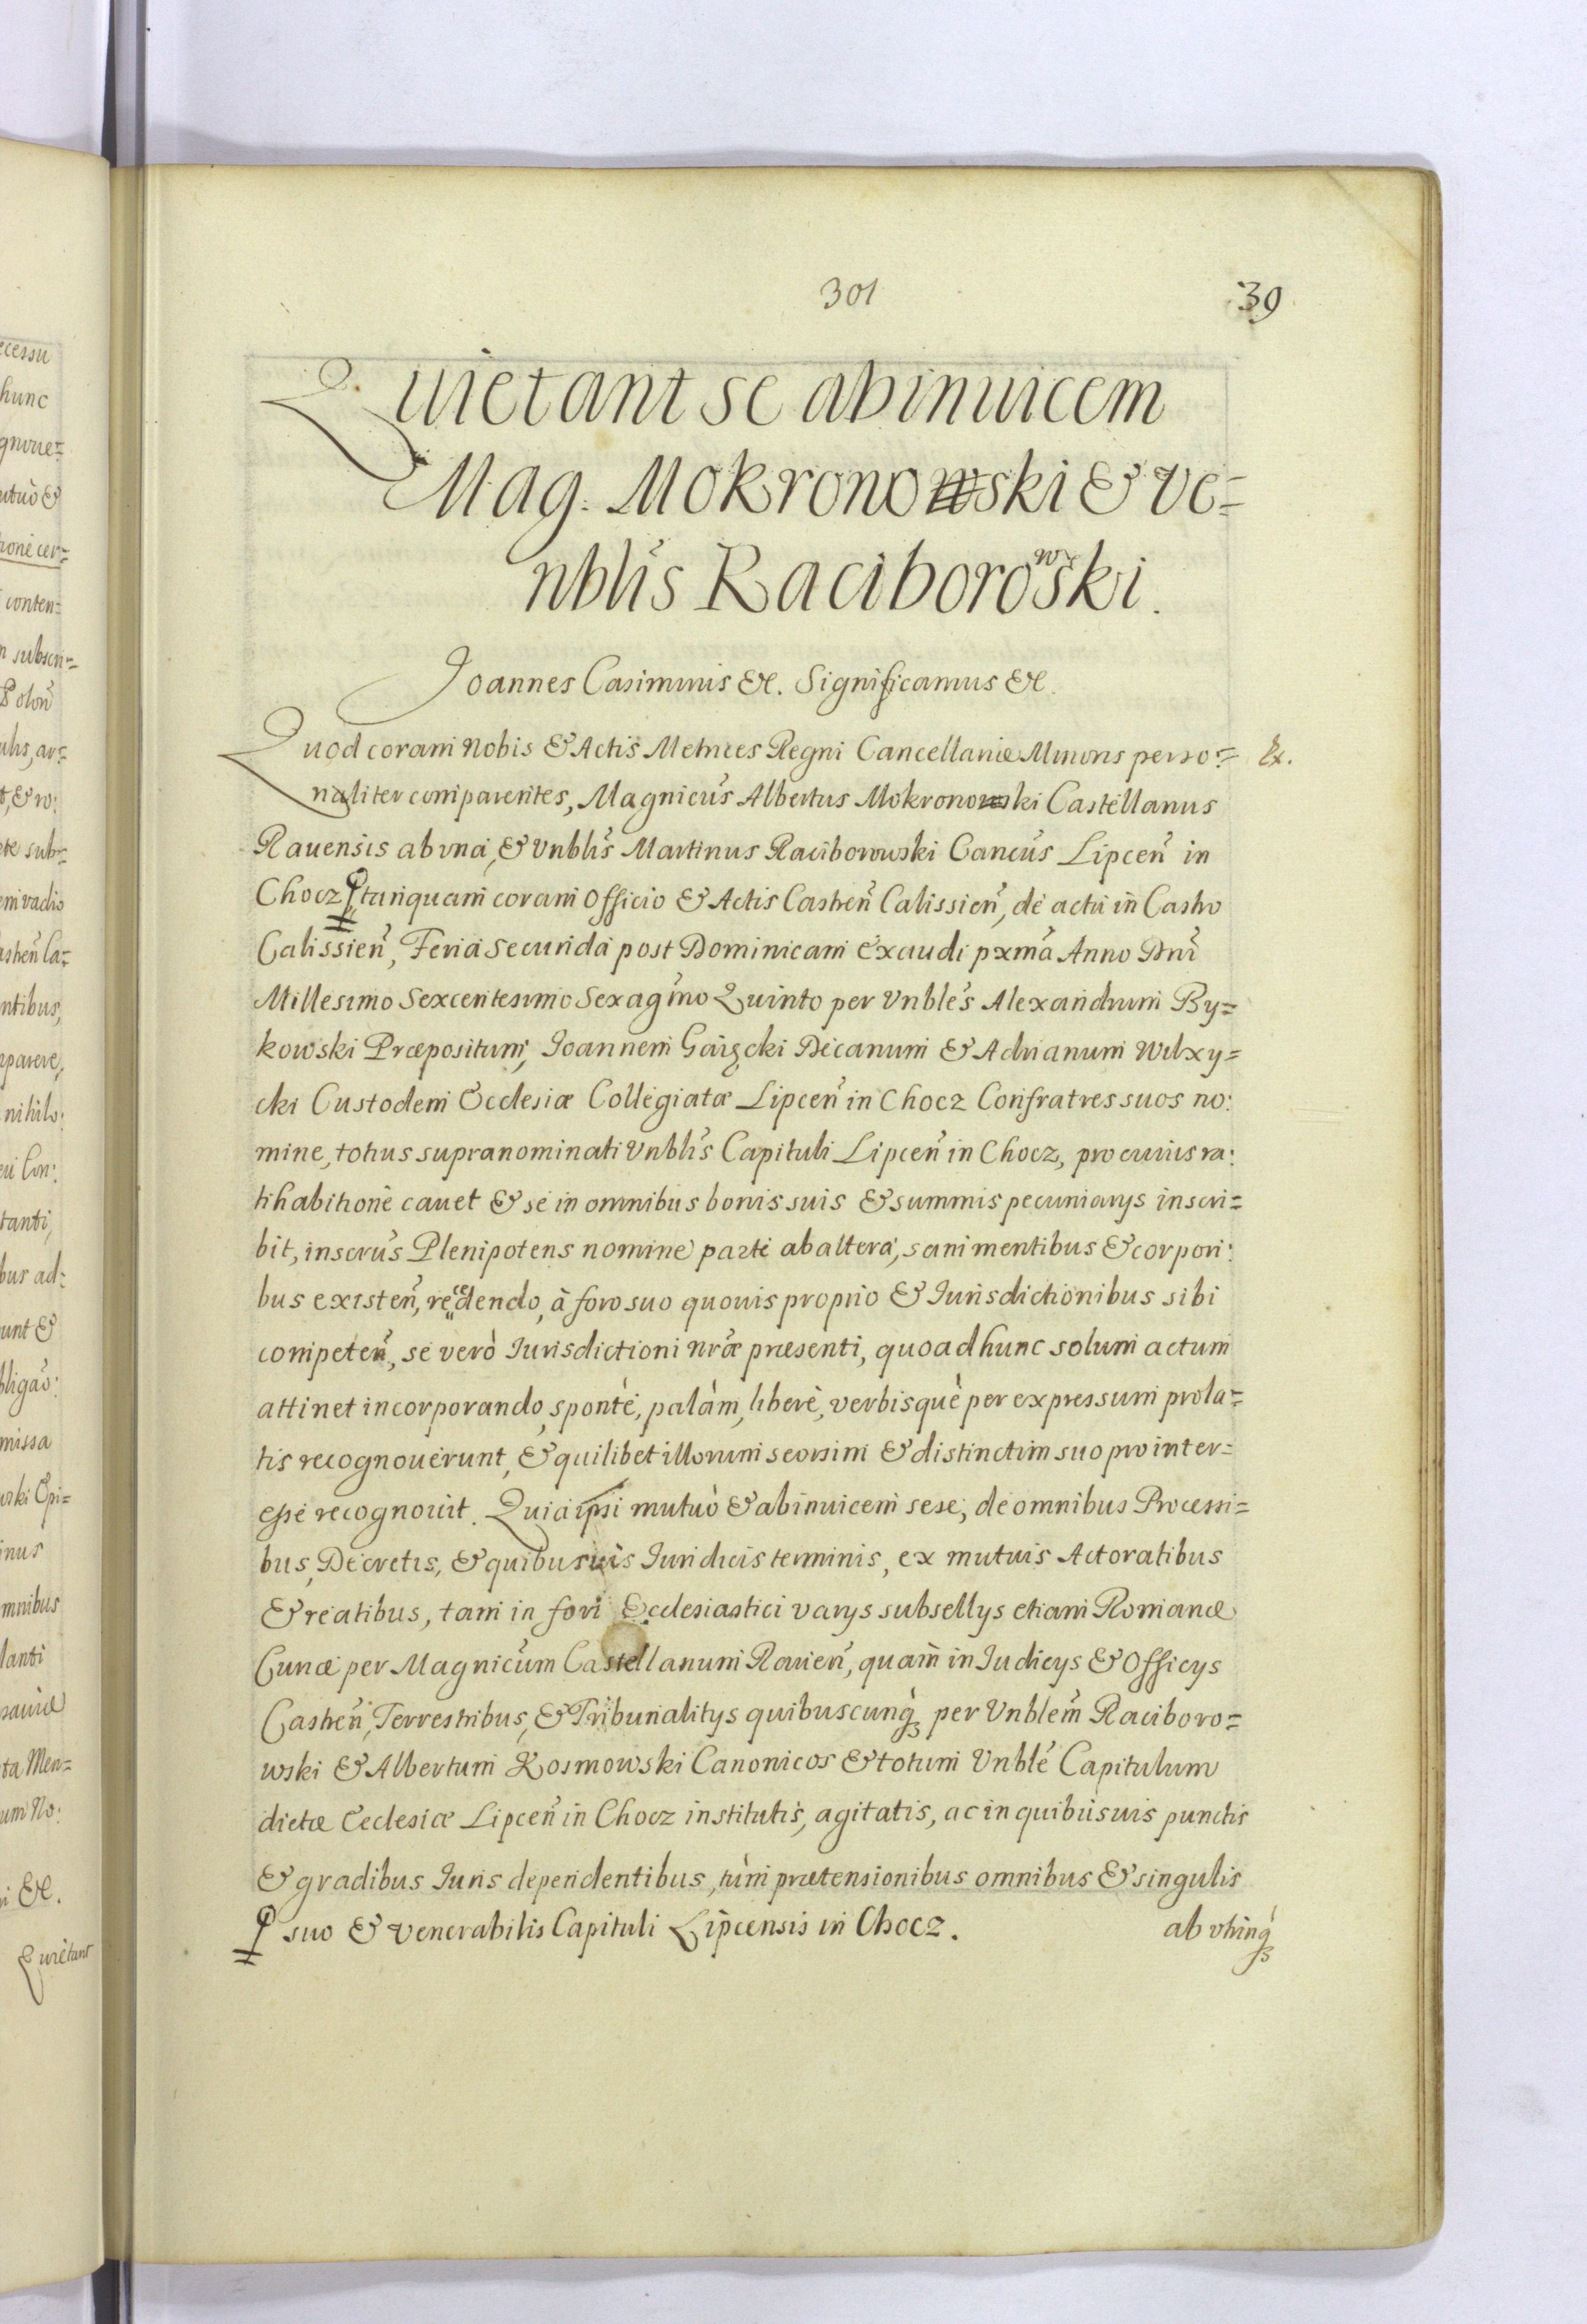 301
39
Quietant se abinuicem
Mag. Mokronowski & ve=
nblis Raciborowski.
Joannes Casimirus &c. Significamus &c.
Quod coram Nobis & Actis Metrices Regni Cancellariæ Minoris perso=
Ex.
naliter comparentes, Magnicus Albertus Mokronowski Castellanus
Rauensis ab vna, & Vnblis Martinus Raciborowski Cancus Lipcen in
Chocz tanquam coram Officio & Actis Castren Calissien, de actu in Castro
Calissien, Feria Secunda post Dominicam Exaudi pxma Anno Dni
Millesimo Sexcentesimo Sexagmo Quinto per Vnbles Alexandrum By=
kowski Præpositum, Joannem Gaięcki Decanum & Adrianum Wilxy=
cki Custodem Ecclesiæ Collegiatæ Lipcen in Chocz Confratres suos no:
mine, totius supranominati Vnblis Capituli Lipcen in Chocz, pro cuius ra:
tihabitione cauet & se in omnibus bonis suis & summis pecuniarys inscri=
bit, inscrus Plenipotens nomine parte ab altera, sani mentibus & corpori:
bus existen, recedendo, à foro suo quouis proprio & Iurisdictionibus sibi
competen, se verò Iurisdictioni nræ præsenti, quoad hunc solum actum
attinet incorporando, sponte, palàm, liberè, verbisquè per expressum prola=
tis recognouerunt, & quilibet illorum seorsim & distinctim suo pro inter=
esse recognouit. Quia ipsi mutuò & abinuicem sese, de omnibus Processi=
bus, Decretis, & quibusuis Iuridicis terminis, ex mutuis Actoratibus
& reatibus, tam in fori Ecclesiastici varys subsellys etiam Romanæ
Curiæ per Magnicum Castellanum Rauien, quam in Iudicys & Officys
Castren, Terrestribus, & Tribunalitys quibuscunq, per Vnblem Raciboro=
wski & Albertum Kosmowski Canonicos & totum Vnble Capitulum
dictæ Ecclesiæ Lipcen in Chocz institutis, agitatis, ac in quibusuis punctis
& gradibus Iuris dependentibus, tùm prætensionibus omnibus & singulis
suo & Venerabilis Capituli Lipcensis in Chocz.
ab vtrinq